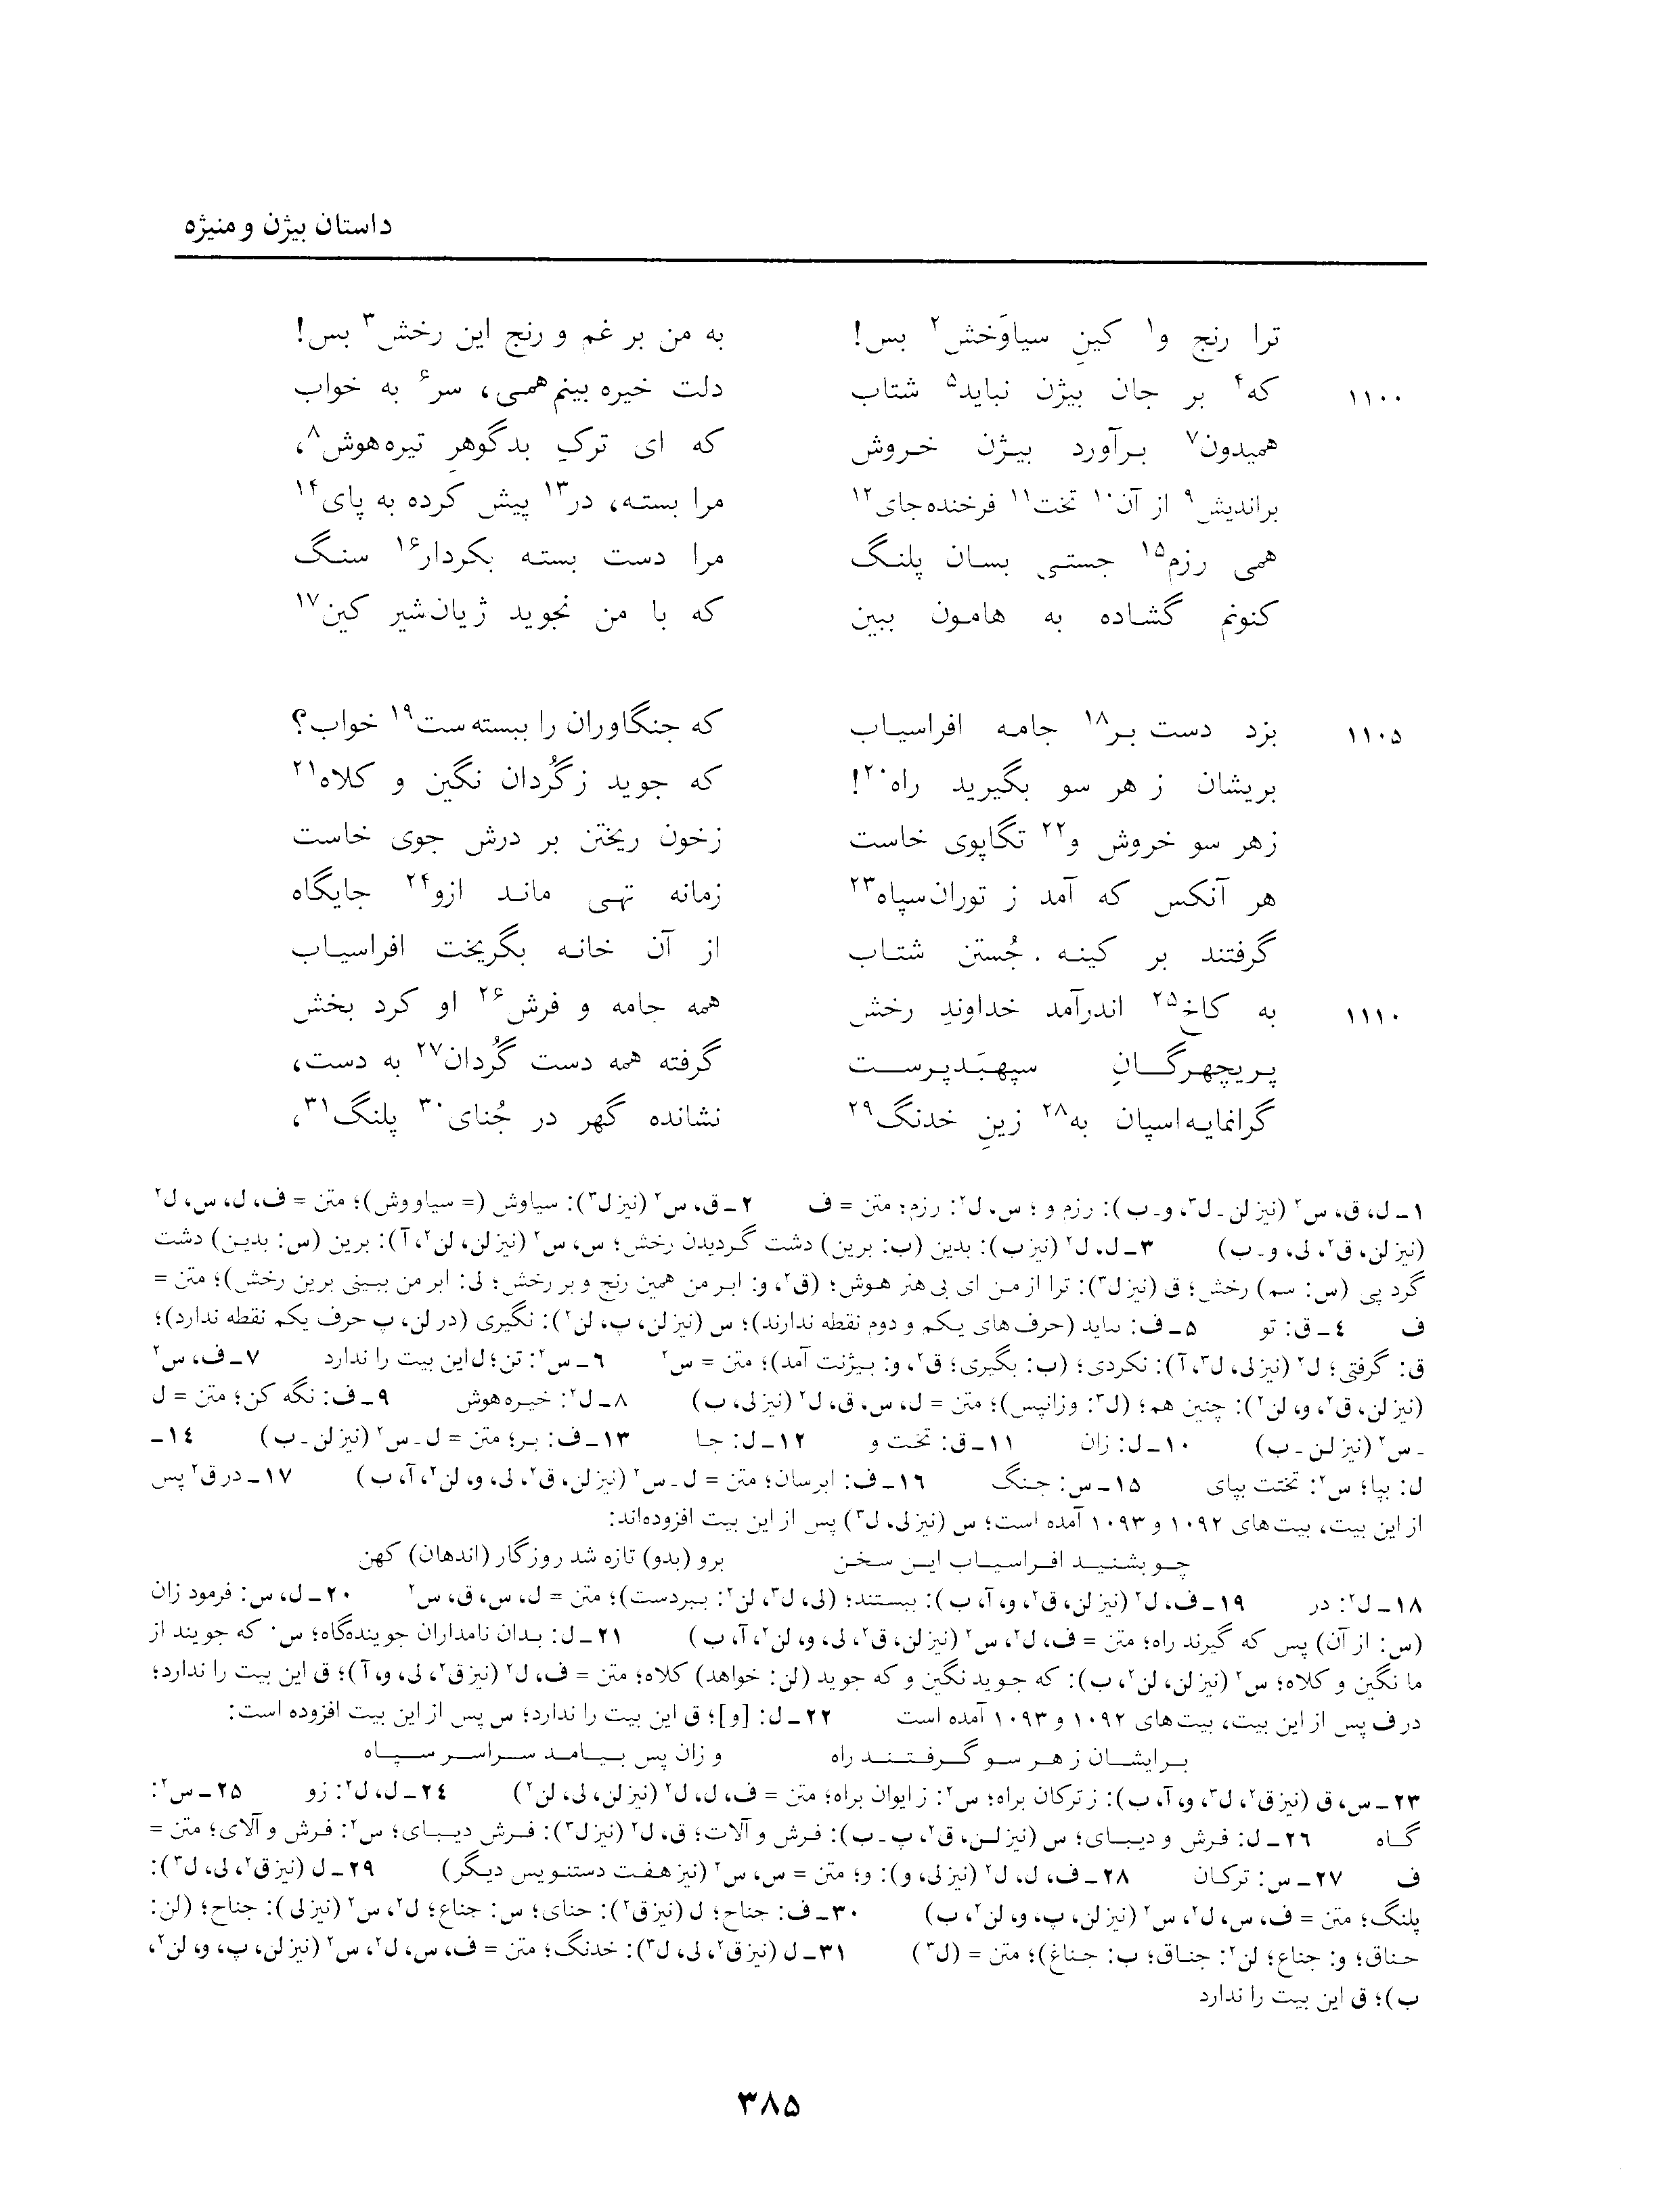 داستان بیژن و منیژه
ترا رنج و۱ کینِ سیاوَخش۲ بس! به من بر غم و رنج این رخش۳ بس!
۱۱۰۰ که۴ بر جان بیژن نباید۵ شتاب دلت خیره بینم همی، سر۶ به خواب
همیدون۷ برآورد بیژن خروش که ای ترکِ بدگوهرِ تیره‌هوش۸،
براندیش۹ از آن۱۰ تخت۱۱ فرخنده‌جای۱۲ مرا بسته، در۱۳ پیش کرده به پای۱۴
همی رزم۱۵ جستی بسان پلنگ مرا دست بسته بکردار۱۶ سنگ
کنونم گشاده به هامون ببین که با من نجوید ژیان‌شیر کین۱۷
۱۱۰۵ بزد دست بر۱۸ جامه افراسیاب که جنگاوران را ببسته‌ست۱۹ خواب؟
بریشان ز هر سو بگیرید راه۲۰! که جوید ز گُردان نگین و کلاه۲۱
زهر سو خروش و۲۲ تگاپوی خاست زخون ریختن بر درش جوی خاست
هر آنکس که آمد ز توران‌سپاه۲۳ زمانه تهی ماند ازو۲۴ جایگاه
گرفتند بر کینه جُستن شتاب از آن خانه بگریخت افراسیاب
۱۱۱۰ به کاخ۲۵ اندرآمد خداوندِ رخش همه جامه و فرش۲۶ او کرد بخش
پریچهرگانِ سپهبَدپرست گرفته همه دست گُردان۲۷ به دست،
گرانمایه‌اسپان به۲۸ زینِ خدنگ۲۹ نشانده گهر در جُنای۳۰ پلنگ۳۱،
۱ـ ل، ق، س۲ (نیز لن ـ ل۳، و ـ ب): رزم و؛ س، ل۲: رزم؛ متن = ف ۲ـ ق، س۲ (نیز ل۳): سیاوش (= سیاووش)؛ متن = ف، ل، س، ل۲
(نیز لن، ق۲، لی، و ـ ب) ۳ـ ل، ل۲ (نیز ب): بدین (ب: برین) دشت گردیدن رخش؛ س، س۲ (نیز لن، لن۲، آ): برین (س: بدین) دشت
گرد پی (س: سم) رخش؛ ق (نیز ل۳): ترا از من ای بی هنر هوش؛ (ق۲، و: ابر من همین رنج و بر رخش؛ لی: ابر من ببینی برین رخش)؛ متن =
ف ۴ـ ق: تو ۵ـ ف: ٮٮاید (حرف‌های یکم و دوم نقطه ندارند)؛ س (نیز لن، پ، لن۲): نگیری (در لن، پ حرف یکم نقطه ندارد)؛
ق: گرفتی؛ ل۲ (نیز لی، ل۳، آ): نکردی؛ (ب: بگیری؛ ق۲، و: بیژنت آمد)؛ متن = س۲ ۶ـ س۲: تن؛ ل این بیت را ندارد ۷ـ ف، س۲
(نیز لن، ق۲، و، لن۲): چنین هم؛ (ل۳: وزانپس)؛ متن = ل، س، ق، ل۲ (نیز لی، ب) ۸ـ ل۲: خیره‌هوش ۹ـ ف: نگه کن؛ متن = ل
ـ س۲ (نیز لن ـ ب) ۱۰ـ ل: زان ۱۱ـ ق: تخت و ۱۲ـ ل: جا ۱۳ـ ف: بر؛ متن = ل ـ س۲ (نیز لن ـ ب) ۱۴ـ
ل: بپا؛ س۲: تختت بپای ۱۵ـ س: جنگ ۱۶ـ ف: ابرسان؛ متن = ل ـ س۲ (نیز لن، ق۲، لی، و، لن۲، آ، ب) ۱۷ـ در ق۲ پس
از این بیت، بیت‌های ۱۰۹۲ و ۱۰۹۳ آمده است؛ س (نیز لی، ل۳) پس از این بیت افزوده‌اند:
چو بشنید افراسیاب این سخن برو (بدو) تازه شد روزگار (اندهان) کهن
۱۸ـ ل۲: در ۱۹ـ ف، ل۲ (نیز لن، ق۲، و، آ، ب): ببستند؛ (لی، ل۳، لن۲: ببردست)؛ متن = ل، س، ق، س۲ ۲۰ـ ل، س: فرمود زان
(س: از آن) پس که گیرند راه؛ متن = ف، ل۲، س۲ (نیز لن، ق۲، لی، و، لن۲، آ، ب) ۲۱ـ ل: بدان نامداران جوینده‌گاه؛ س: که جویند از
ما نگین و کلاه؛ س۲ (نیز لن، لن۲، ب): که جوید نگین و که جوید (لن: خواهد) کلاه؛ متن = ف، ل۲ (نیز ق۲، لی، و، آ)؛ ق این بیت را ندارد؛
در ف پس از این بیت، بیت‌های ۱۰۹۲ و ۱۰۹۳ آمده است ۲۲ـ ل: [و]؛ ق این بیت را ندارد؛ س پس از این بیت افزوده است:
برایشان ز هر سو گرفتند راه و زان پس بیامد سراسر سپاه
۲۳ـ س، ق (نیز ق۲، ل۳، و، آ، ب): ز ترکان براه؛ س۲: ز ایوان براه؛ متن = ف، ل، ل۲ (نیز لن، لی، لن۲) ۲۴ـ ل، ل۲: زو ۲۵ـ س۲:
گاه ۲۶ـ ل: فرش و دیبای؛ س (نیز لن، ق۲، پ ـ ب): فرش و آلات؛ ق، ل۲ (نیز ل۳): فرش دیبای؛ س۲: فرش و آلای؛ متن =
ف ۲۷ـ س: ترکان ۲۸ـ ف، ل، ل۲ (نیز لی، و): و؛ متن = س، س۲ (نیز هفت دستنویس دیگر) ۲۹ـ ل (نیز ق۲، لی، ل۳):
پلنگ؛ متن = ف، س، ل۲، س۲ (نیز لن، پ، و، لن۲، ب) ۳۰ـ ف: جناح؛ ل (نیز ق۲): حنای؛ س: جناع؛ ل۲، س۲ (نیز لی): جناح؛ (لن:
حناق؛ و: جناع؛ لن۲: جناق؛ ب: جناغ)؛ متن = (ل۳) ۳۱ـ ل (نیز ق۲، لی، ل۳): خدنگ؛ متن = ف، س، ل۲، س۲ (نیز لن، پ، و، لن۲،
ب)؛ ق این بیت را ندارد
۳۸۵